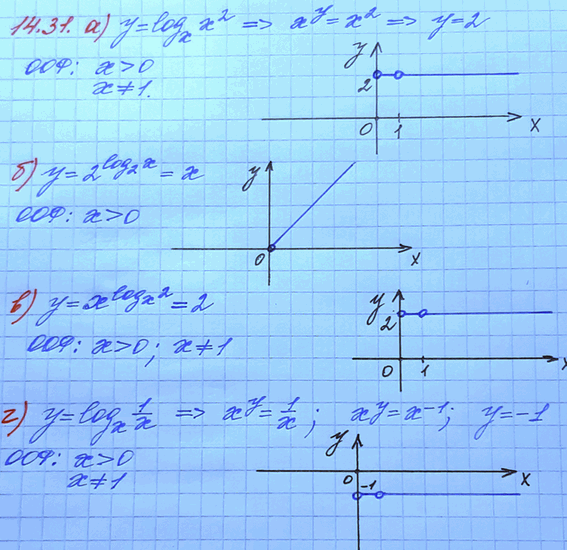 14.31. а) y = logₓ x² => x^y = x² => y = 2
ООФ: x > 0
x ≠ 1.
y
2
0 1 x
б) y = 2^(log₂ x) = x
ООФ: x > 0
y
0 x
в) y = x^(logₓ 2) = 2
ООФ: x > 0; x ≠ 1
y
2
0 1 x
г) y = logₓ 1/x => x^y = 1/x; x^y = x⁻¹; y = -1
ООФ: x > 0
x ≠ 1
y
0 -1 x